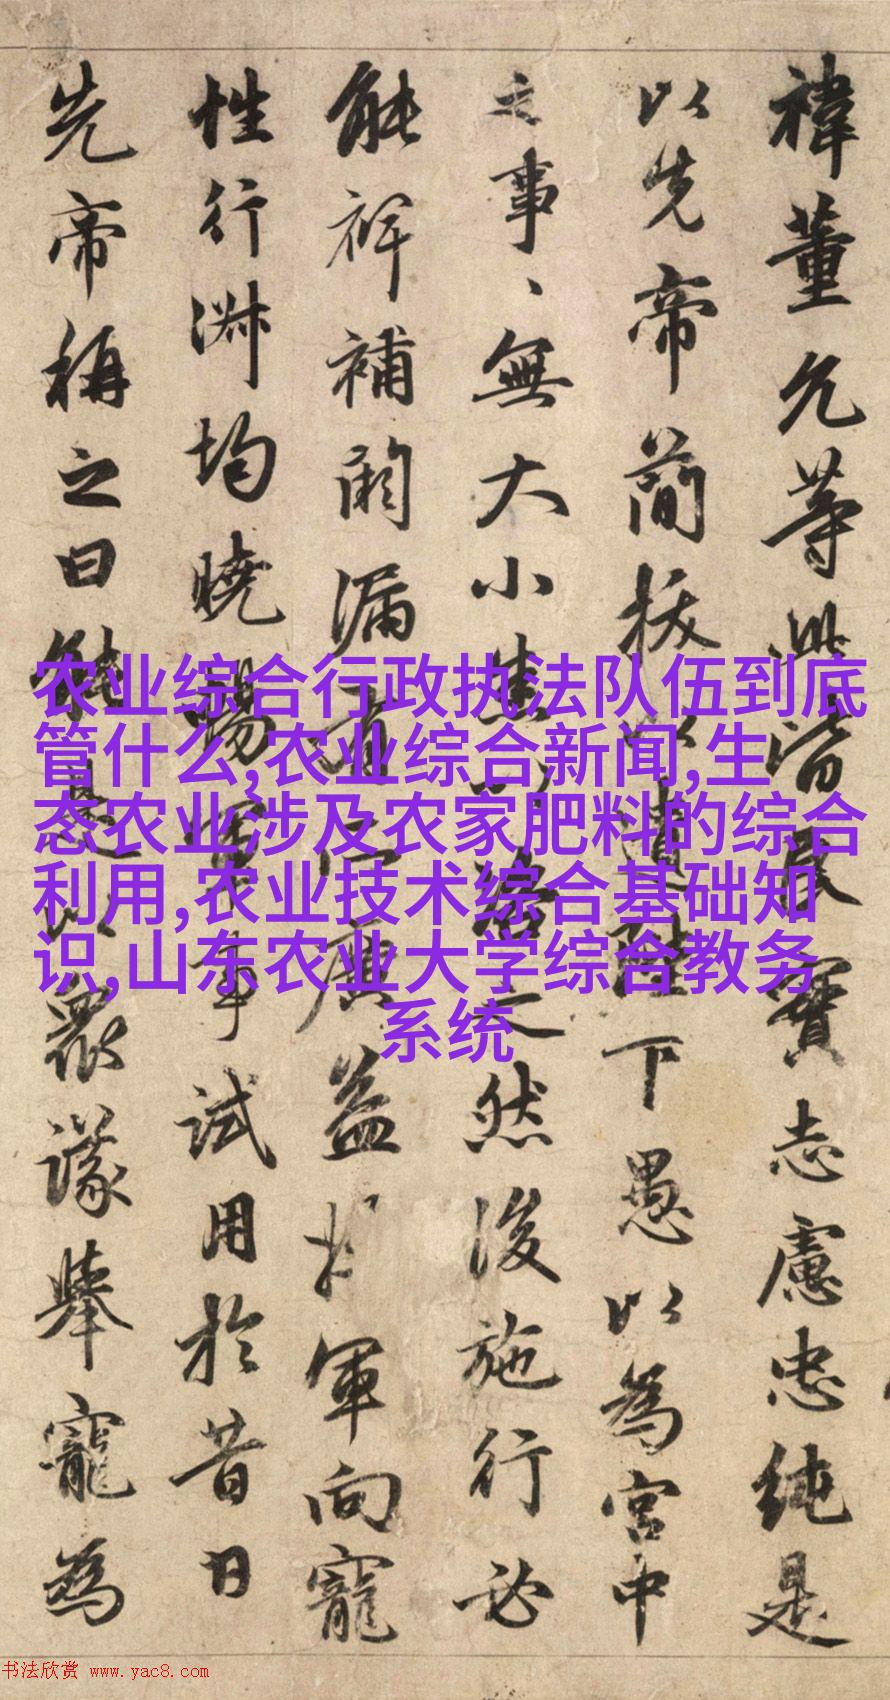 禕董允等此皆良實志慮忠純是
以先帝簡拔以遺陛下愚以為宮中
之事、無大小悉以咨之然後施行必
能裨補闕漏有所廣益將軍向寵
性行淑均曉暢軍事試用於昔日
先帝稱之曰能是以衆議舉寵為
农业综合行政执法队伍到底
管什么,农业综合新闻,生
态农业涉及农家肥料的综合
利用,农业技术综合基础知
识,山东农业大学综合教务
系统
书法欣赏 www.yac8.com